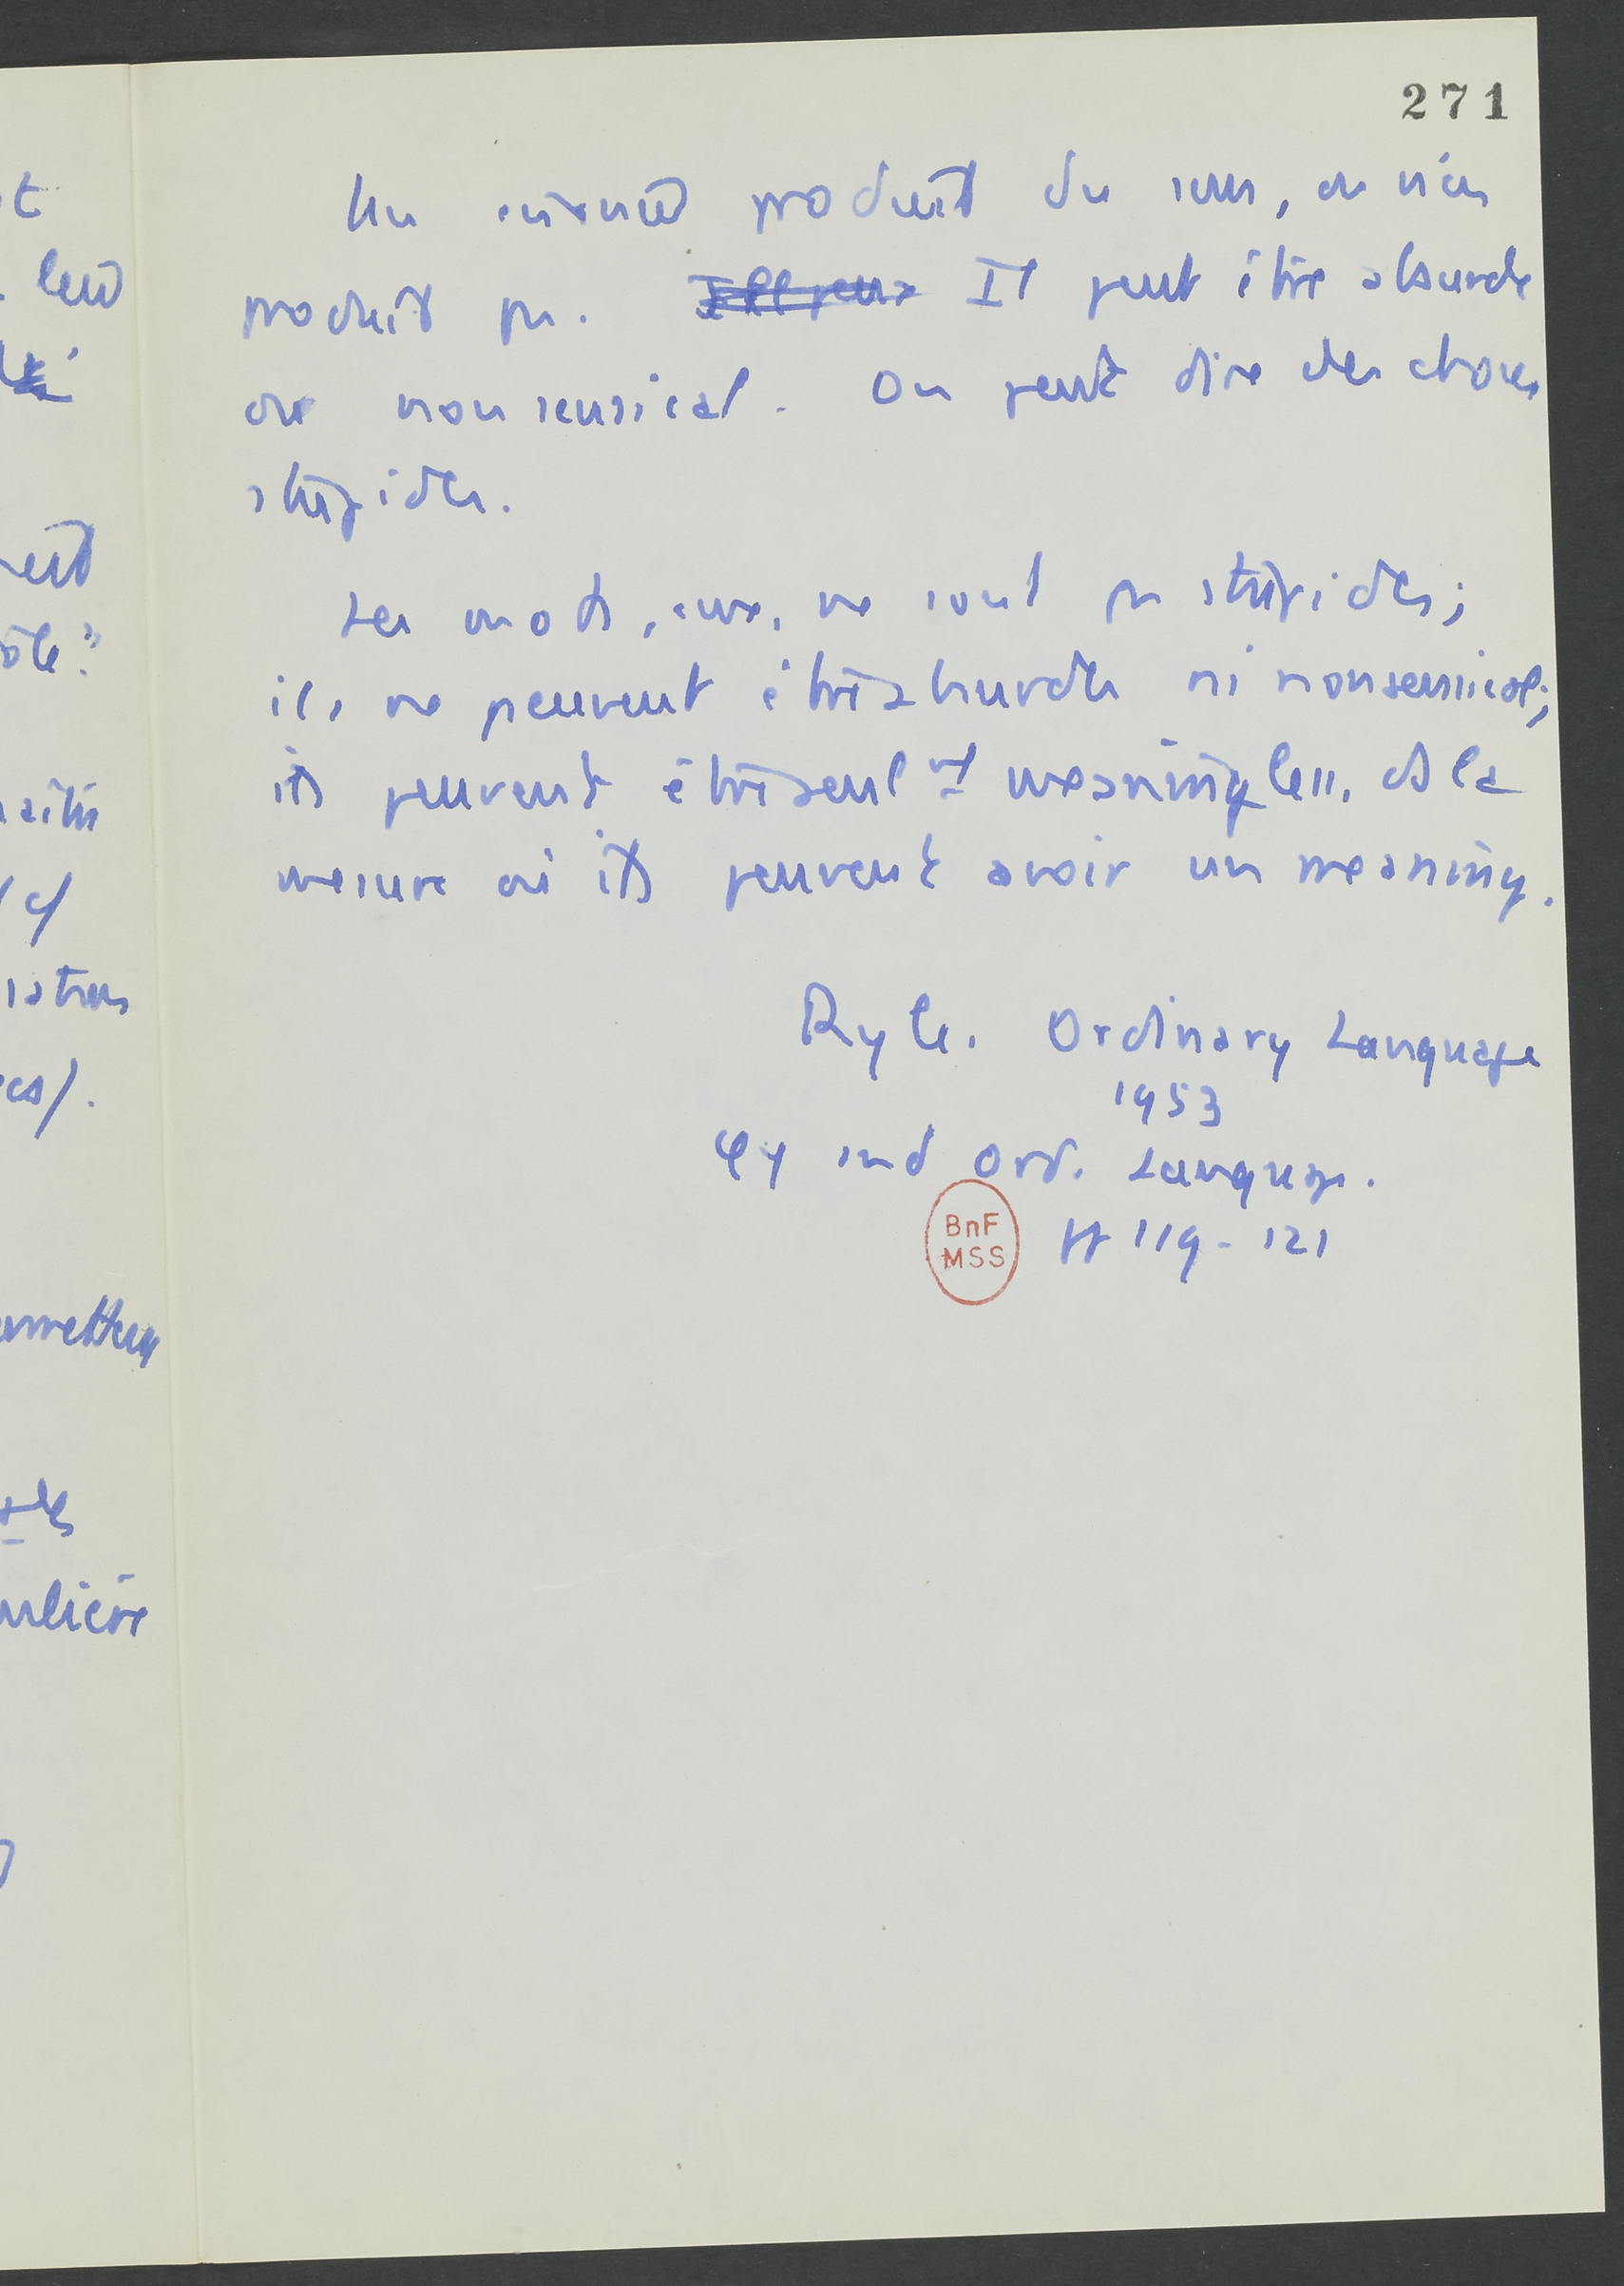 271
Un énoncé produit du sens, ou n'en
produit pas. Il peut être absurde
ou nonsensical. On peut dire des choses
stupides.
Les mots, eux, ne sont pas stupides;
ils ne peuvent être absurdes ni nonsensical;
ils peuvent être seulᵗ meaningless, ds la
mesure où ils peuvent avoir un meaning.
Ryle. Ordinary Language
1953
φy and Ord. Language.
pp 119-121
BnF
MSS